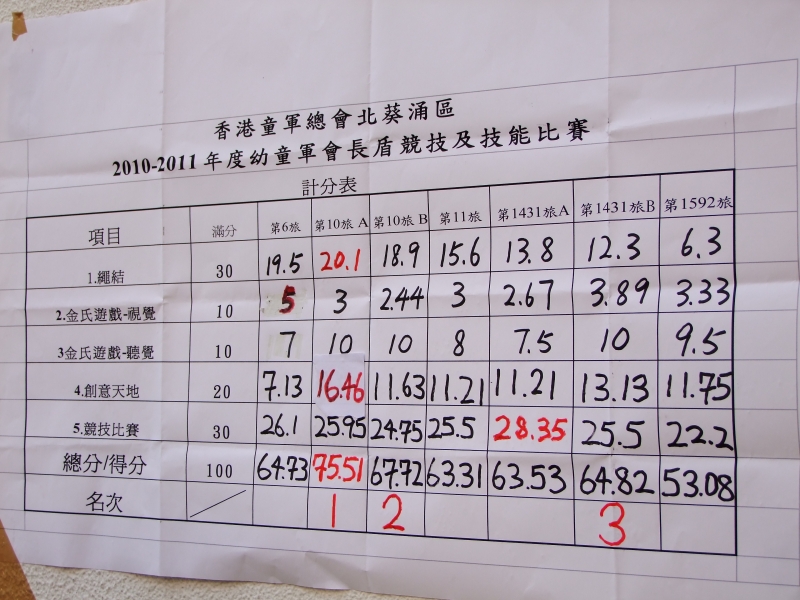 香港童軍總會北葵涌區
2010-2011 年度幼童軍會長盾競技及技能比賽
計分表
項目 滿分 第6旅 第10旅 A 第10旅 B 第11旅 第1431旅A 第1431旅B 第1592旅
1.繩結 30 19.5 20.1 18.9 15.6 13.8 12.3 6.3
2.金氏遊戲-視覺 10 5 3 2.44 3 2.67 3.89 3.33
3金氏遊戲-聽覺 10 7 10 10 8 7.5 10 9.5
4.創意天地 20 7.13 16.46 11.63 11.21 11.21 13.13 11.75
5.競技比賽 30 26.1 25.95 24.75 25.5 28.35 25.5 22.2
總分/得分 100 64.73 75.51 67.72 63.31 63.53 64.82 53.08
名次 1 2 3